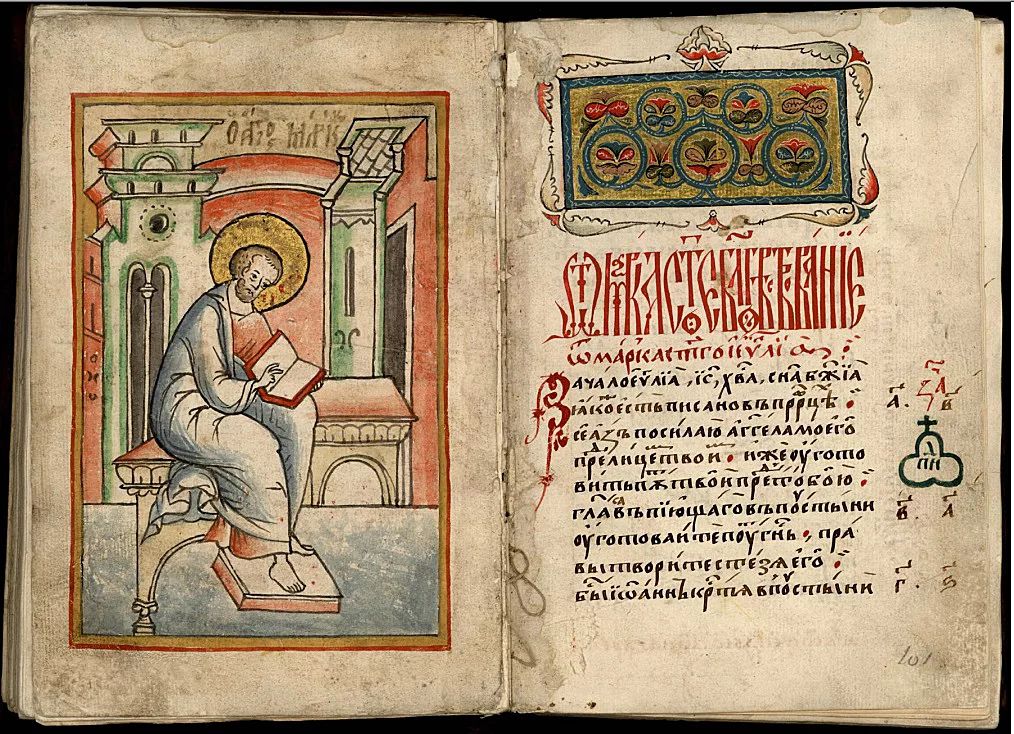 Ѿ марка ст҃ое бл҃говѣствованїе
ѿ марка ст҃го еѵ҃лїа
Зачало еѵ҃лїа, іс҃ хв҃а, сн҃а бж҃їа
ꙗко есть писано въ прⷪ҇рцѣ ·
се азъ посилаю аггела моего
преⷣ лицеⷨ твоиⷨ · иже оугото
витъ пѫть твои преⷣ тобою ·
глаⷭ въпїющаго въ поустыни
оуготоваите поуⷮ гн҃ь, пра
вы творите стезѧ его ·
бы іѡаннъ крⷭ҇тѧ в поустыни
а҃. в҃
пн
в҃. а҃
г҃. ѕ҃
101